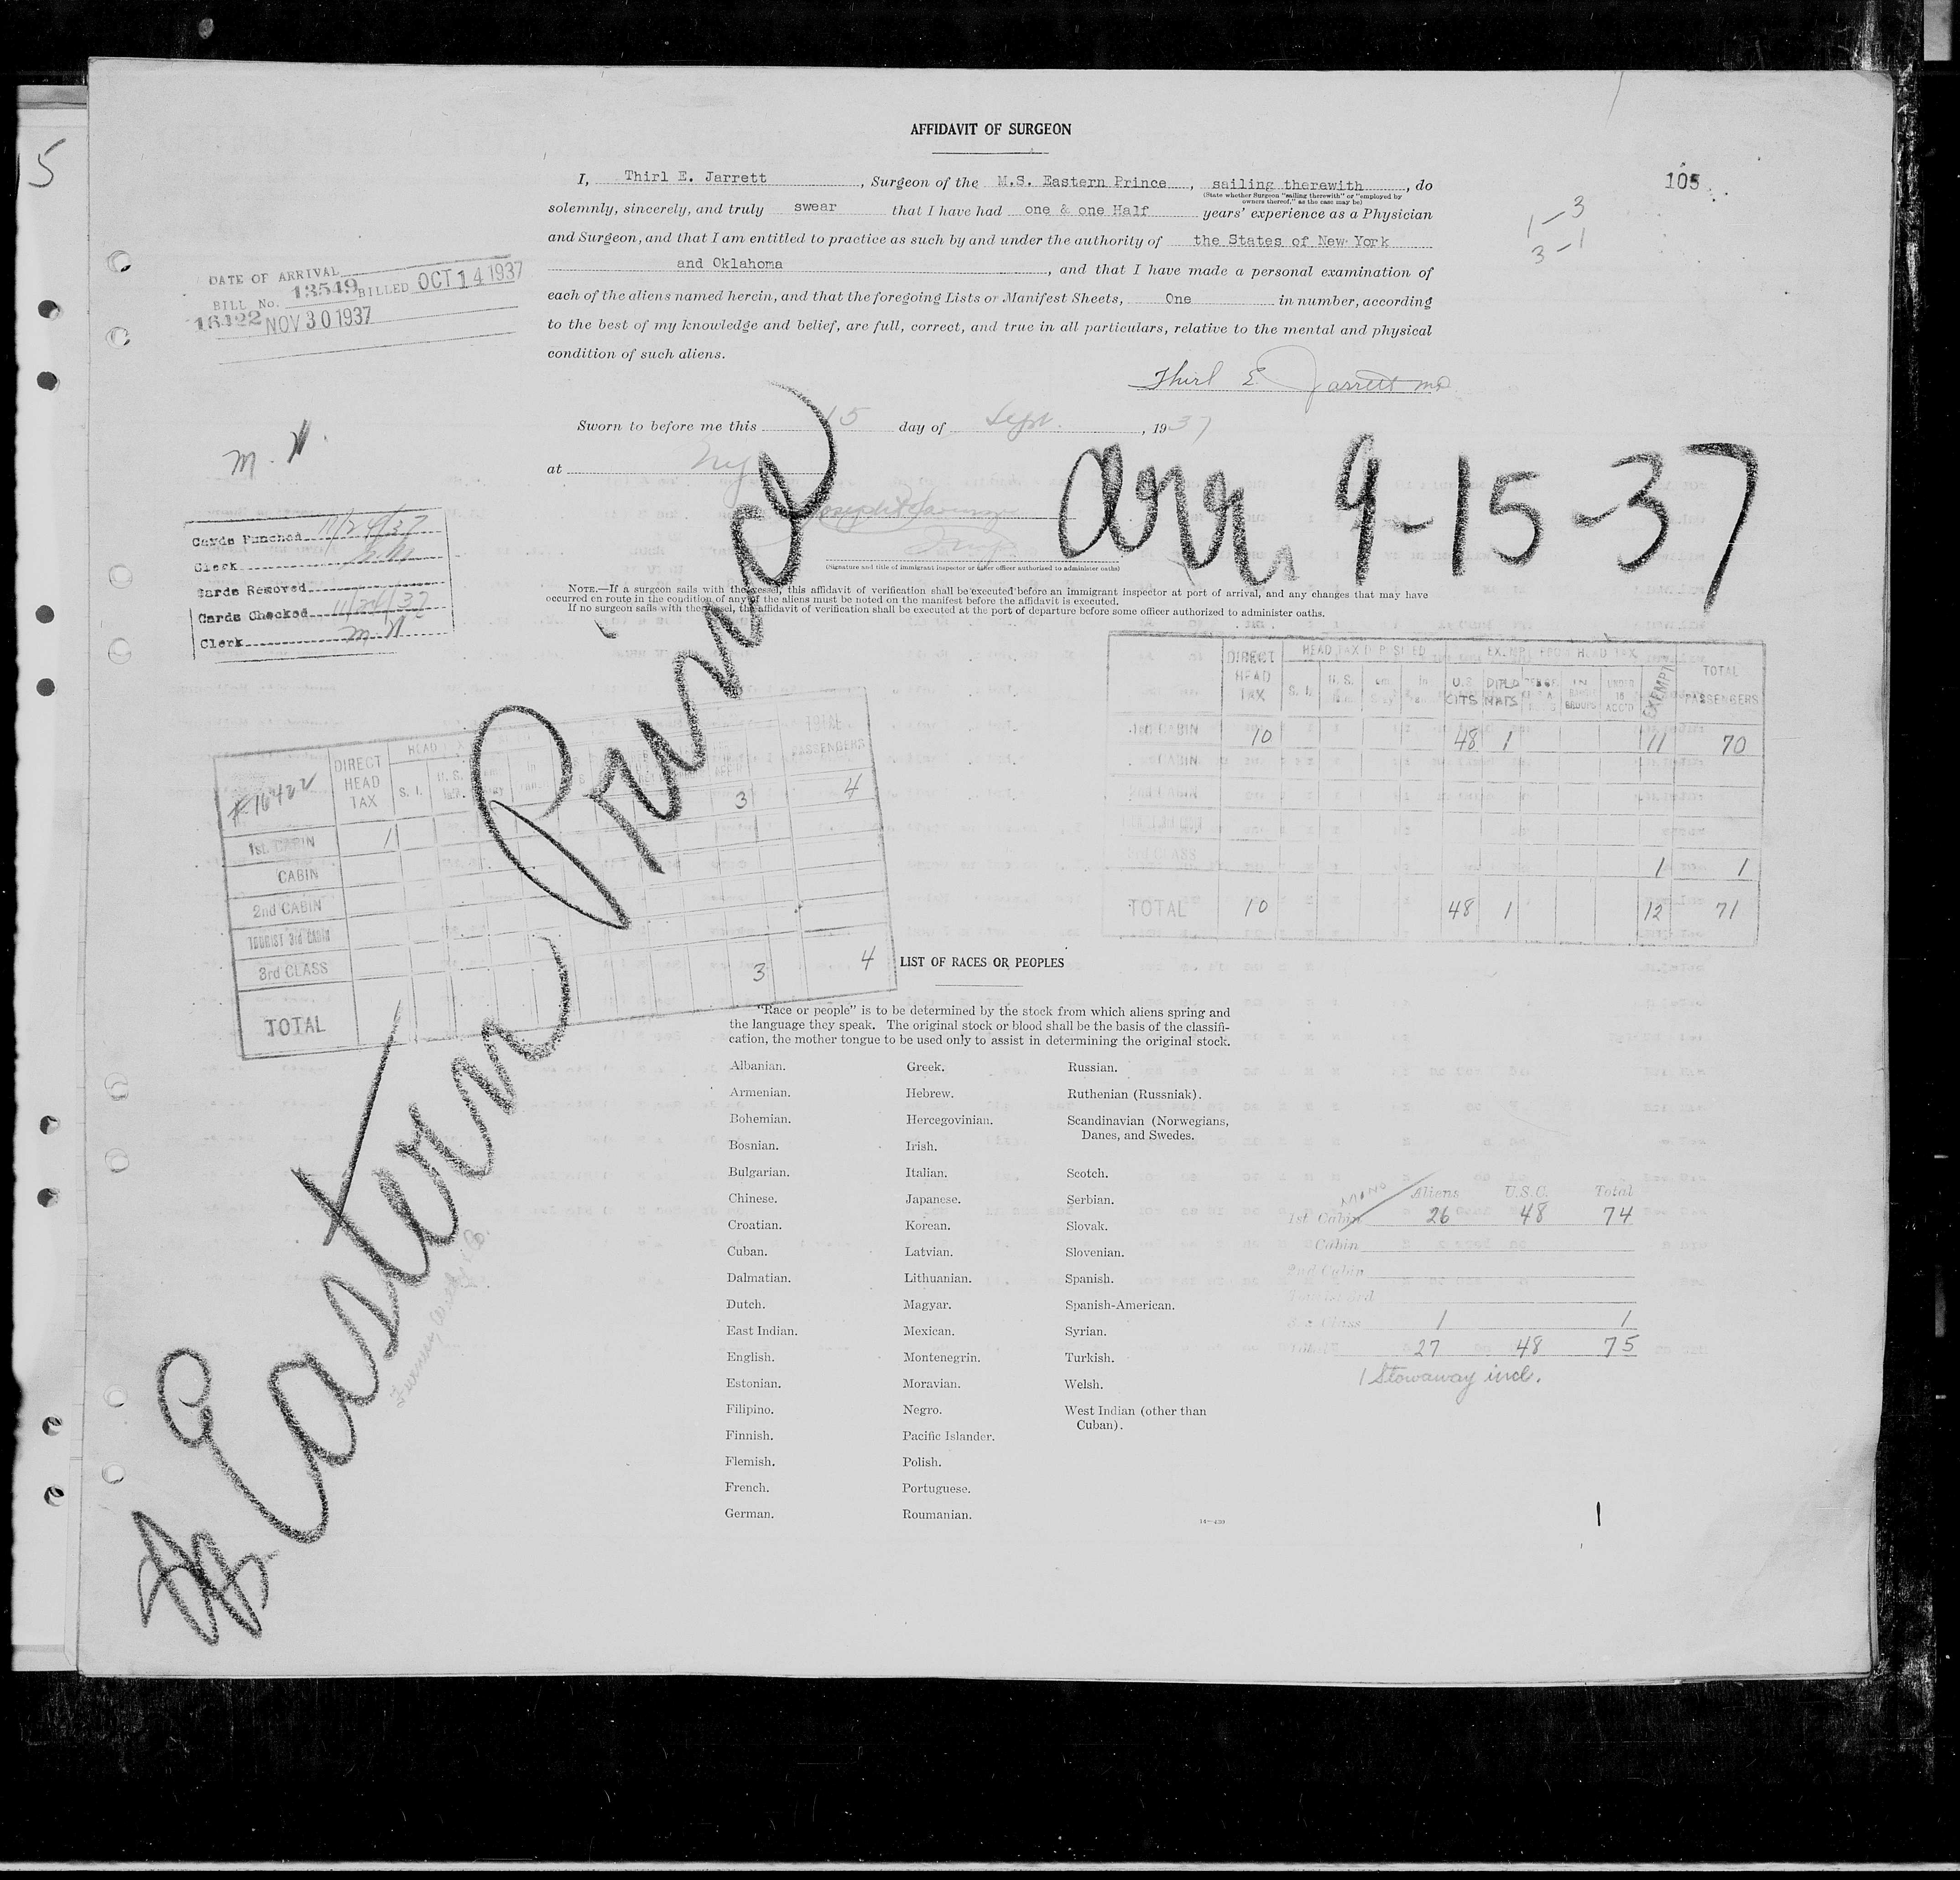 5
AFFIDAVIT OF SURGEON
105
I, Thirl E. Jarrett, Surgeon of the M.S. Eastern Prince, sailing therewith, do
(State whether Surgeon "sailing therewith" or "employed by
owners thereof," as the case may be)
solemnly, sincerely, and truly swear that I have had one & one Half years' experience as a Physician
and Surgeon, and that I am entitled to practice as such by and under the authority of the States of New York
and Oklahoma, and that I have made a personal examination of
each of the aliens named herein, and that the foregoing Lists or Manifest Sheets, One in number, according
to the best of my knowledge and belief, are full, correct, and true in all particulars, relative to the mental and physical
condition of such aliens.
Thirl E. Jarrett MD
Sworn to before me this 15 day of Sept., 1937
at NY
(Signature and title of immigrant inspector or other officer authorized to administer oaths)
NOTE.—If a surgeon sails with the vessel, this affidavit of verification shall be executed before an immigrant inspector at port of arrival, and any changes that may have
occurred en route in the condition of any of the aliens must be noted on the manifest before the affidavit is executed.
If no surgeon sails with the vessel, the affidavit of verification shall be executed at the port of departure before some officer authorized to administer oaths.
1-3
3-1
DATE OF ARRIVAL
BILL No. 13549 BILLED OCT 14 1937
16422 NOV 30 1937
M. N.
Cards Punched 11/24/37
Clerk
Cards Removed
Cards Checked 11/24/37
Clerk M. N
Arr. 9-15-37
Eastern Prince
DIRECT HEAD TAX
HEAD TAX DEPOSITED
EXEMPT FROM HEAD TAX
TOTAL PASSENGERS
S. I.
U.S. CITS
DIPLO MATS
UNDER 16 ACC'D
EXEMPT
1st CABIN 10 48 1 11 70
CABIN
2nd CABIN
3rd CLASS 1 1
TOTAL 10 48 1 12 71
#16422
DIRECT HEAD TAX
S. I.
TOTAL PASSENGERS
3 4
1st CABIN 1
CABIN
2nd CABIN
TOURIST 3rd CABIN
3rd CLASS 3 4
TOTAL 1
LIST OF RACES OR PEOPLES
"Race or people" is to be determined by the stock from which aliens spring and
the language they speak. The original stock or blood shall be the basis of the classifi-
cation, the mother tongue to be used only to assist in determining the original stock.
Albanian.
Armenian.
Bohemian.
Bosnian.
Bulgarian.
Chinese.
Croatian.
Cuban.
Dalmatian.
Dutch.
East Indian.
English.
Estonian.
Filipino.
Finnish.
Flemish.
French.
German.
Greek.
Hebrew.
Hercegovinian.
Irish.
Italian.
Japanese.
Korean.
Latvian.
Lithuanian.
Magyar.
Mexican.
Montenegrin.
Moravian.
Negro.
Pacific Islander.
Polish.
Portuguese.
Roumanian.
Russian.
Ruthenian (Russniak).
Scandinavian (Norwegians,
Danes, and Swedes.
Scotch.
Serbian.
Slovak.
Slovenian.
Spanish.
Spanish-American.
Syrian.
Turkish.
Welsh.
West Indian (other than
Cuban).
14—430
Aliens U.S.C. Total
1st Cabin 26 48 74
Cabin
2nd Cabin
Tourist 3rd
3rd Class 1 1
Total 27 48 75
1 Stowaway incl.